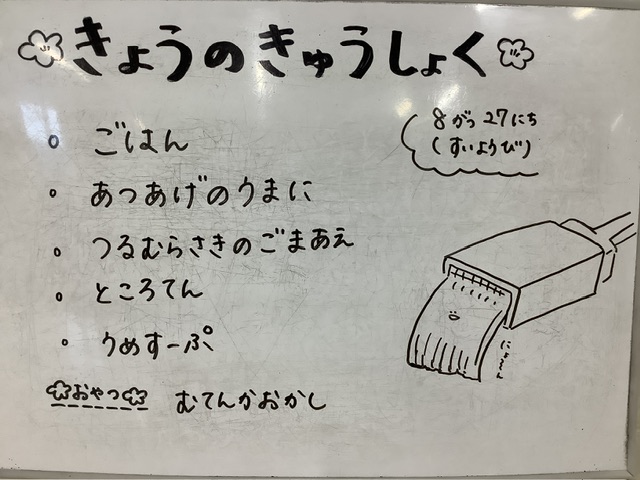 きょうのきゅうしょく
8がつ27にち
(すいようび)
ごはん
あつあげのうまに
つるむらさきのごまあえ
ところてん
うめすーぷ
おやつ むてんかおかし